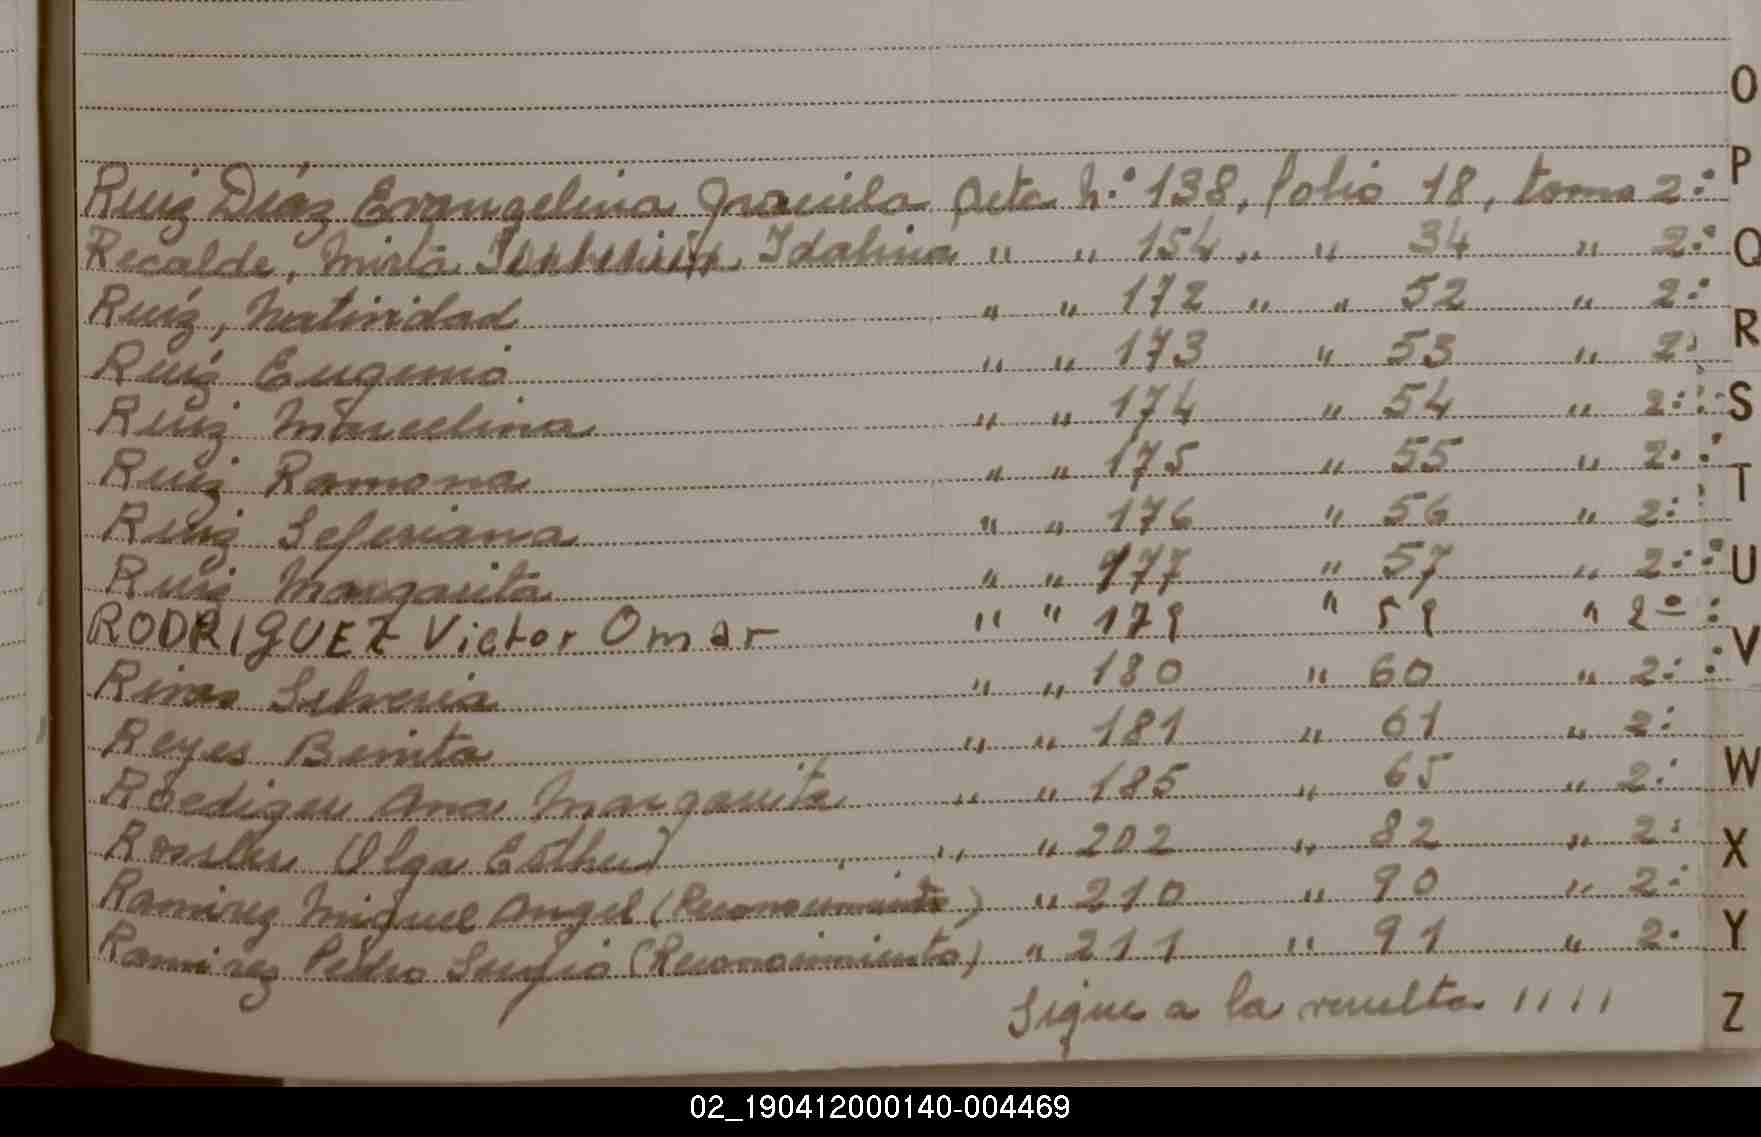 Ruiz Díaz Evangelina Graciela Acta N.° 138, folio 18, tomo 2.°
Recalde, Mirta Idalina " " 154 " " 34 " 2.°
Ruíz, Natividad " " 172 " " 52 " 2.°
Ruiz Eugenio " " 173 " 53 " 2.°
Ruiz Marcelina " " 174 " 54 " 2.°
Ruiz Ramona " " 175 " 55 " 2.°
Ruiz Seferiana " " 176 " 56 " 2.°
Ruiz Margarita " " 177 " 57 " 2.°
RODRIGUEZ Victor Omar " " 179 " 59 " 2°
Silveria " " 180 " 60 " 2.°
Reyes Benita " " 181 " 61 " 2.°
Roediger Ana Margarita " " 185 " 65 " 2.°
Olga Esther " " 202 " 82 " 2.°
Ramirez Miguel Angel (Reconocimiento) " 210 " 90 " 2.°
Ramirez Pedro Sergio (Reconocimiento) " 211 " 91 " 2.°
Sigue a la vuelta ////
O
P
Q
R
S
T
U
V
W
X
Y
Z
02_190412000140-004469